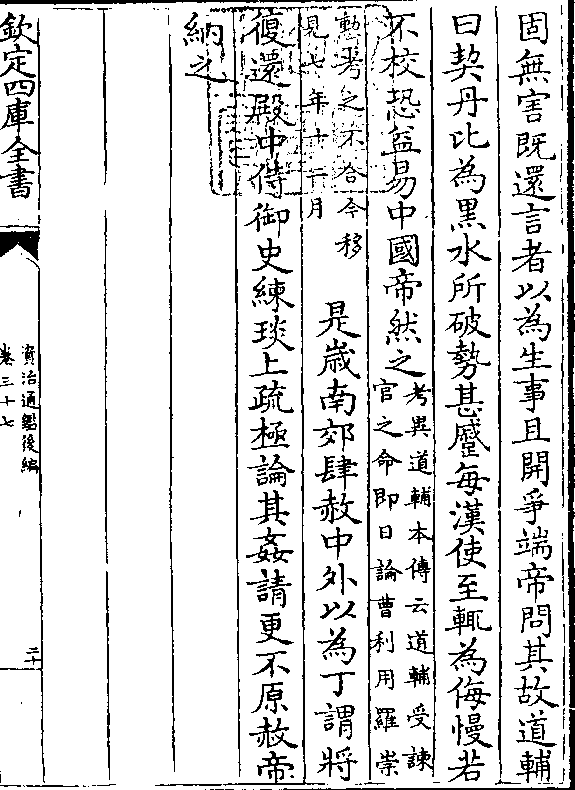 固無害既還言者以為生事且開爭端帝問其故道輔
曰契丹比為黒水所破勢甚蹙每漢使至輒為侮慢若
不校恐益易中國帝然之考異道輔本傳云道輔受諫
官之命即日論曹利用羅崇
勲考之不合今移
見七年十一月
是歳南郊肆赦中外以為丁謂將
復還殿中侍御史練琰上疏極論其姦請更不原赦帝
納之
欽定四庫全書
資治通鑑後編
卷三十七
二十